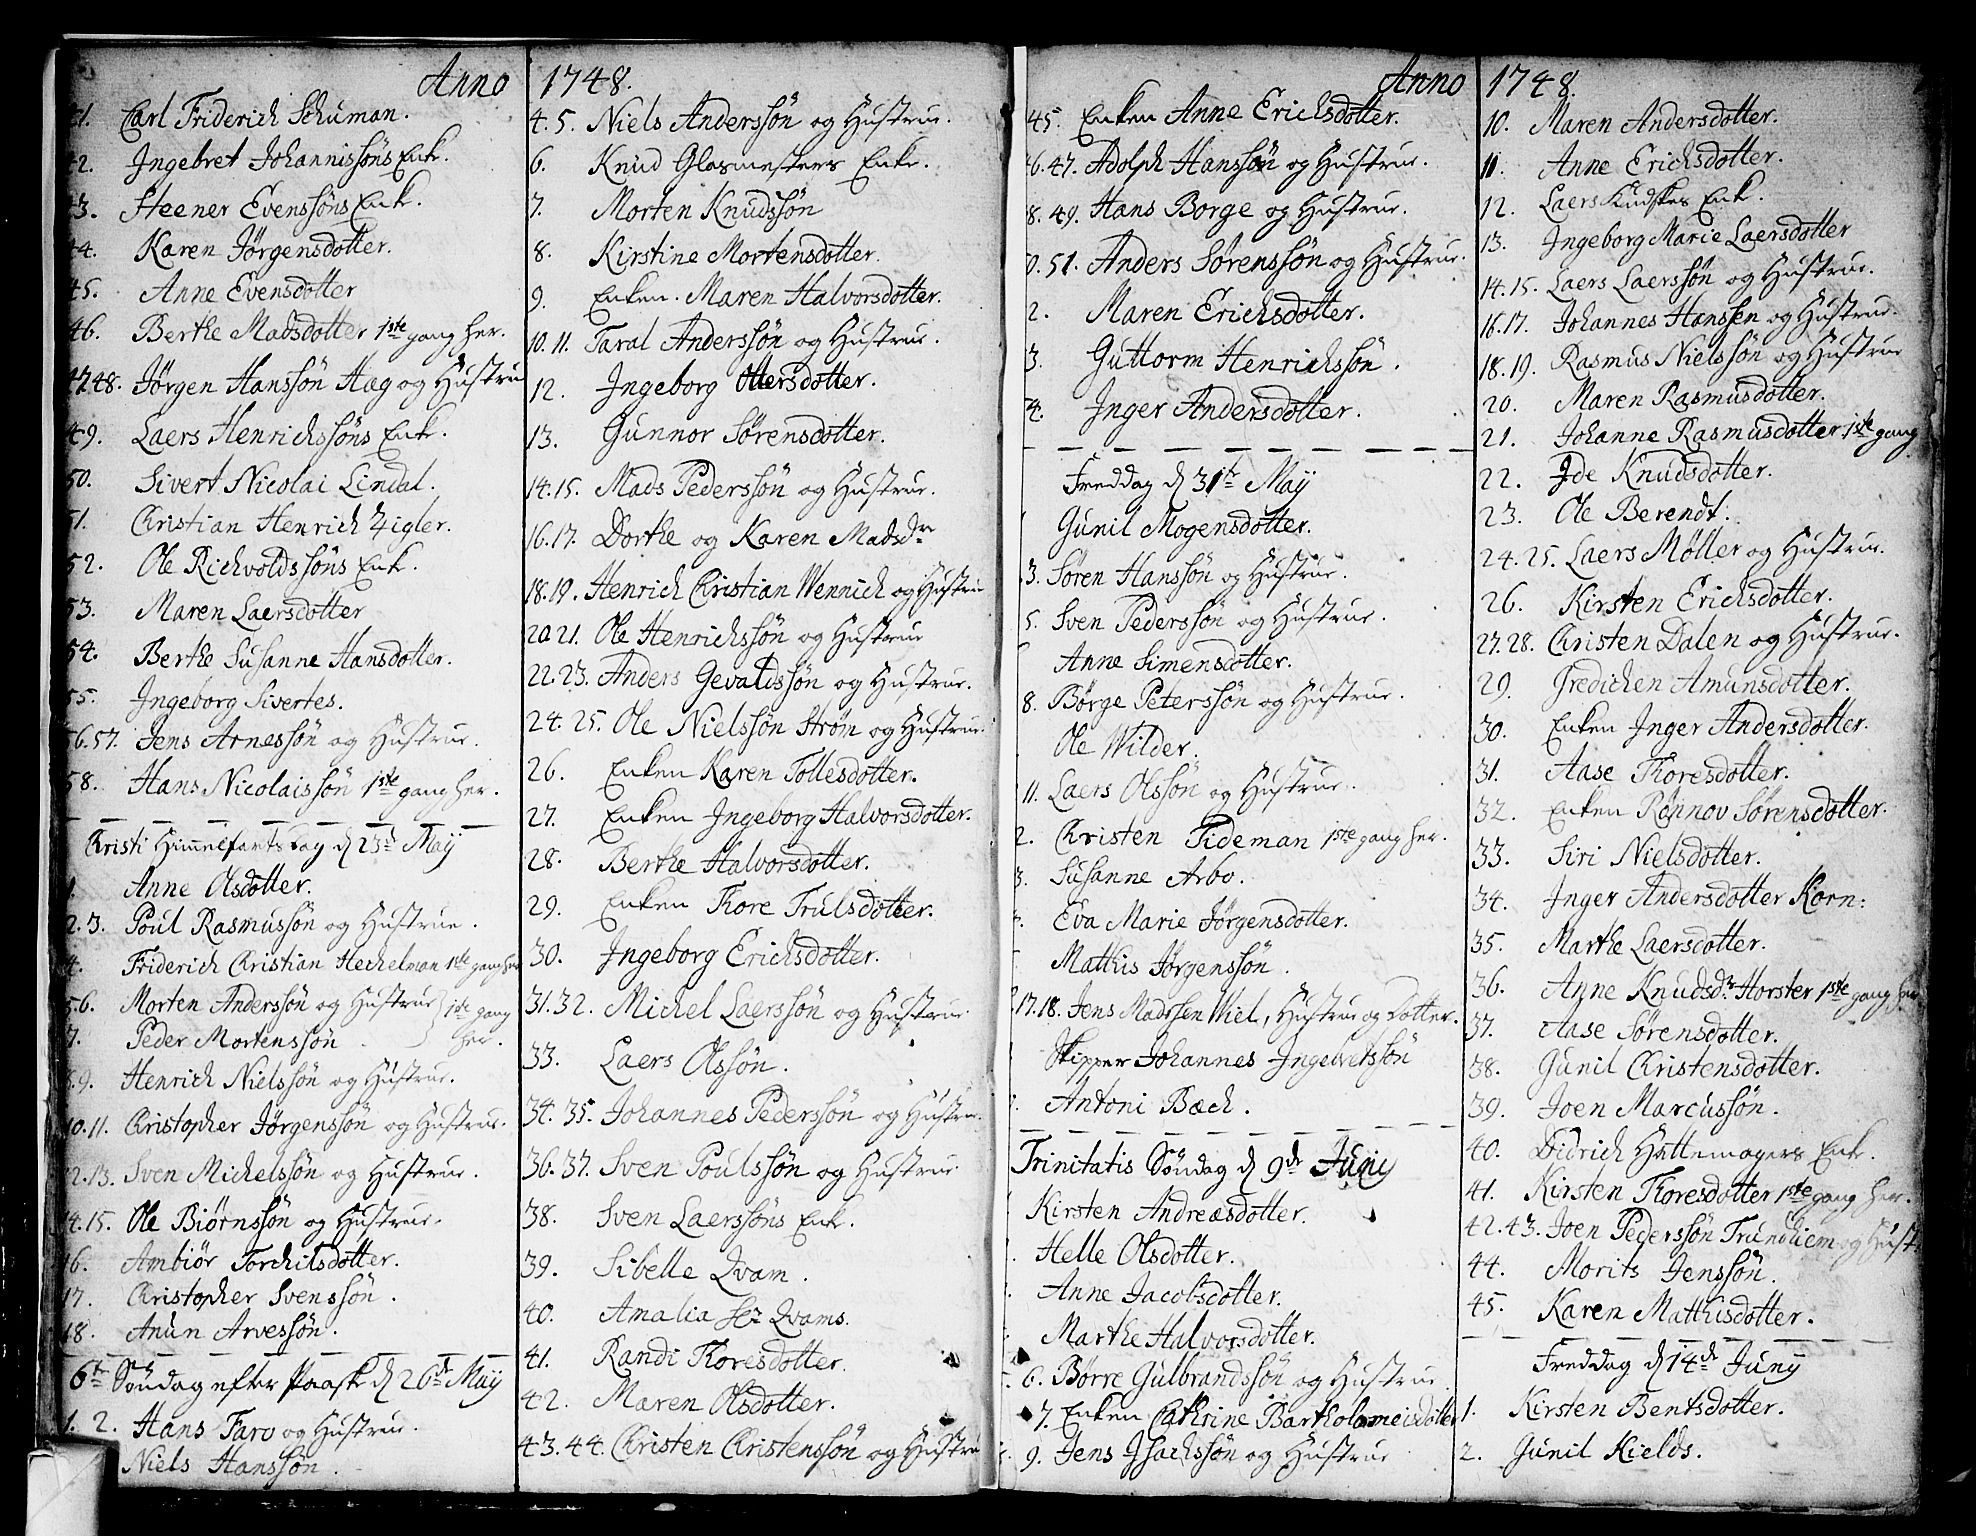 Anno 1748.
41. Carl Friderich Schuman.
42. Ingebret Johannissöns Enk.
43. Steener Evenssöns Enk.
44. Karen Jörgensdotter.
45. Anne Evensdotter
46. Berthe Madsdotter 1ste gang her.
47.48. Jörgen Hanssön Hæg og Hustru
49. Laers Henrichssöns Enk.
50. Sivert Nicolai Lindal.
51. Christian Henrich Zigler.
52. Ole Richvoldssöns Enk.
53. Maren Laersdotter
54. Berthe Susanne Hansdotter.
55. Ingeborg Sivertes.
56.57. Jens Arnessön og Hustrue.
58. Hans Nicolaissön 1ste gang her.
Christi Himmelfarts Dag d 23d Maij
1. Anne Olsdotter.
2.3. Poul Rasmussön og Hustrue.
4. Friderich Christian Hechelman 1ste gang her
5.6. Morten Anderssön og Hustrue 1ste gang her.
7. Peder Mortenssön
8.9. Henrich Nielssön og Hustrue.
10.11. Christopher Jörgenssön og Hustrue.
12.13. Sven Michelssön og Hustrue.
14.15. Ole Biörnssön og Hustrue.
16. Ambiör Torchilsdotter.
17. Christopher Svenssön.
18. Anun Arvessön.
6te Söndag efter Paask d 26de Maij
1. 2. Hans Faro og Hustrue.
Niels Hanssön.
4.5. Niels Anderssön og Hustrue.
6. Knud Glasmesters Enke.
7. Morten Knudssön
8. Kirstine Mortensdotter.
9. Enken Maren Halvorsdotter.
10.11. Taral Anderssön og Hustrue.
12. Ingeborg Ottersdotter.
13. Gunnor Sörensdotter.
14.15. Mads Pederssön og Hustrue.
16.17. Dorthe og Karen Madsdr
18.19. Henrich Christian Wennich og Hustru
20.21. Ole Henrichssön og Hustrue
22.23. Anders Gevaldssön og Hustrue.
24.25. Ole Nielssön Ström og Hustrue.
26. Enken Karen Tollesdotter.
27. Enken Ingeborg Halvorsdotter.
28. Berthe Halvorsdotter.
29. Enken Thore Trulsdotter.
30. Ingeborg Erichsdotter.
31.32. Michel Laerssön og Hustrue.
33. Laers Olssön.
34.35. Johannes Pederssön og Hustrue.
36.37. Sven Poulssön og Hustrue
38. Sven Laerssöns Enk.
39. Sibelle Qvam.
40. Amalia Qvams.
41. Randi Thoresdotter.
42. Maren Olsdotter.
43.44. Christen Christenssön og Hustru
Anno 1748.
45. Enken Anne Erichsdotter.
46.47. Adolph Hanssön og Hustrue.
8.49. Hans Borge og Hustrue.
0.51. Anders Sörenssön og Hustrue.
2. Maren Erichsdotter.
3. Guttorm Henrichssön.
4. Inger Andersdotter.
Freddag d 31te Maij
Gunil Mogensdotter.
3. Sören Hanssön og Hustrue.
5. Sven Pederssön og Hustrue.
Anne Simensdotter.
8. Börge Peterssön og Hustrue.
Ole Wilder.
11. Laers Olssön og Hustrue.
2. Christen Tideman 1ste gang her.
3. Susanne Arbo.
Eva Marie Jörgensdotter.
Matthis Jörgenssön.
17.18. Jens Madssen Wiel, Hustrue og Dotter.
Skipper Johannes Ingebretssön
Antoni Bæch.
Trinitatis Söndag d 9de Junij
Kirsten Andreæsdotter.
Helle Olsdotter.
Anne Jacobsdotter.
Marthe Halvorsdotter.
6. Börre Gulbrandssön og Hustrue
7. Enken Cathrine Bartholomeisdotter
9. Jens Isachssön og Hustrue
10. Maren Andersdotter.
11. Anne Erichsdotter.
12. Laers Kudskes Enk.
13. Ingeborg Marie Laersdotter
14.15. Laers Laerssön og Hustrue.
16.17. Johannes Hanssen og Hustrue.
18.19. Rasmus Nielssön og Hustrue
20. Maren Rasmusdotter.
21. Johanne Rasmusdotter 1ste gang
22. Ide Knudsdotter.
23. Ole Berendt.
24.25. Laers Möller og Hustrue.
26. Kirsten Erichsdotter.
27.28. Christen Dalen og Hustrue.
29. Fredichen Amunsdotter.
30. Enken Inger Andersdotter.
31. Aase Thoresdotter.
32. Enken Rönnov Sörensdotter.
33. Siri Nielsdotter.
34. Inger Andersdotter Korn:
35. Marthe Laersdotter.
36. Anne Knudsdr Horster 1ste gang her.
37. Aase Sörensdotter.
38. Gunil Christensdotter.
39. Joen Marcussön.
40. Didrich Hattemagers Enk.
41. Kirsten Thoresdotter 1ste gang her.
42.43. Joen Pederssön Trundhiem og Hust.
44. Morits Jenssön.
45. Karen Matthisdotter.
Freddag d 14de Junij
1. Kirsten Bentsdotter.
2. Gunil Kields.